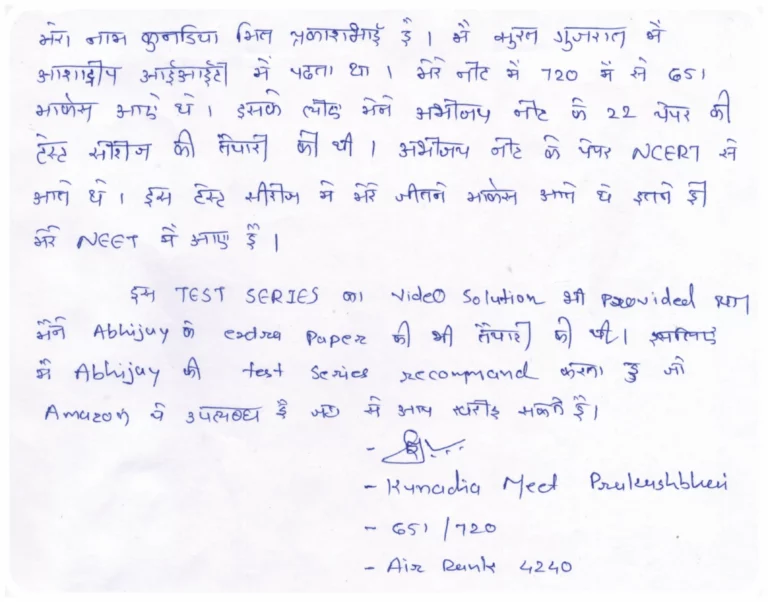 मेरा नाम कुनडिया मित प्रकाशभाई है । मै सुरत गुजरात मै
आशादीप आईआईटी में पढता था । मेरे नीट में 720 में से 651
मार्कस आए थे । इसके लीए मेने अभीजय नीट के 22 पेपर की
टेस्ट सीरीज की तैयारी की थी । अभीजय नीट के पेपर NCERT से
आते थे । इस टेस्ट सीरीज मे मेरे जीतने मार्कस आते थे इतने ही
मेरे NEET में आए है ।
इस TEST SERIES का Video Solution भी Provided था।
मैने Abhijay के extra Paper की भी तैयारी की थी। इसलिए
मै Abhijay की test Series recommand करता हु जो
Amazon पे उपलब्ध है जहा से आप खरीद सकते है।
- Kunadia Meet Prakashbhai
- 651 / 720
- Air Rank 4240